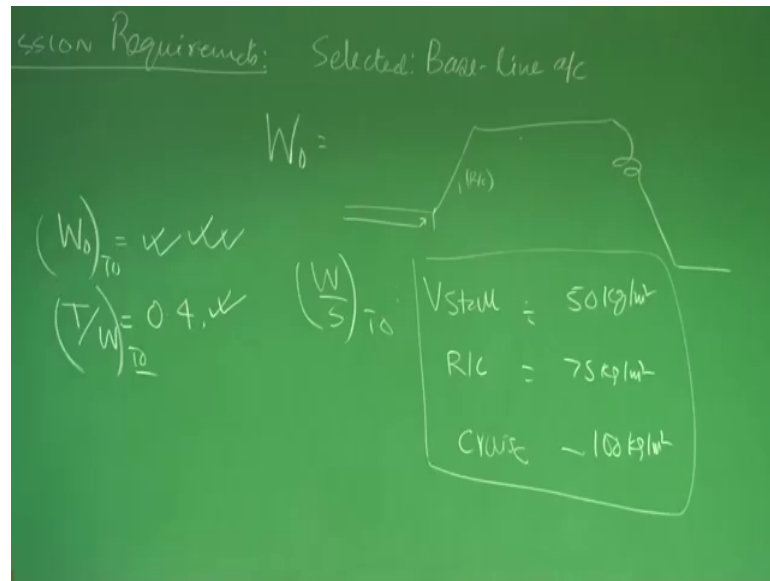 ssion Requiremets: Selected: Base-Line a/c
W₀ =
(R/c)
(W₀)TO =
(T/W)TO = 0.4,
(W/S)TO
Vstall = 50 kg/m²
R/C = 75 kg/m²
Cruise ~ 100 kg/m²